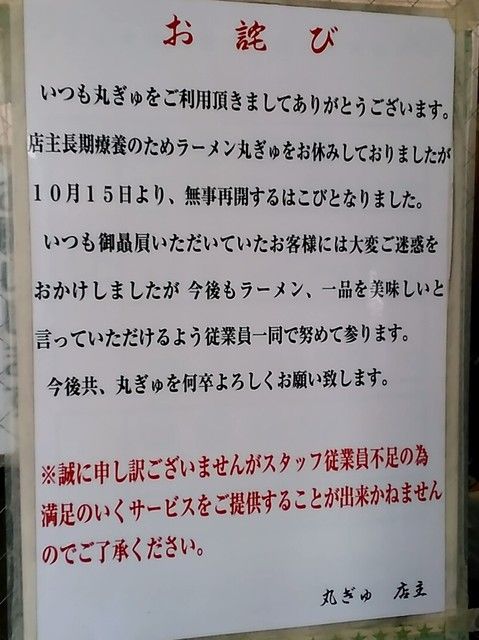 お詫び
いつも丸ぎゅをご利用頂きましてありがとうございます。
店主長期療養のためラーメン丸ぎゅをお休みしておりましたが
１０月１５日より、無事再開するはこびとなりました。
いつも御贔屓いただいていたお客様には大変ご迷惑を
おかけしましたが 今後もラーメン、一品を美味しいと
言っていただけるよう従業員一同で努めて参ります。
今後共、丸ぎゅを何卒よろしくお願い致します。
※誠に申し訳ございませんがスタッフ従業員不足の為
満足のいくサービスをご提供することが出来かねません
のでご了承ください。
丸ぎゅ 店主